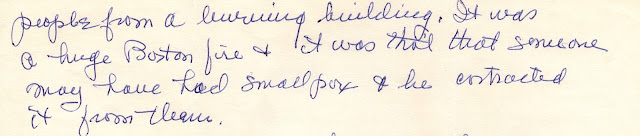 people from a burning building. It was
a huge Boston fire & it was that that someone
may have had small pox & he contracted
it from them.